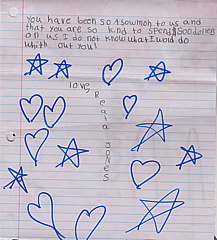 you have been so Asowmon to us and
that you are so kind to spend $500 dollers
on us I do not know what I wold do
whith out you!
love,
Beata Jones